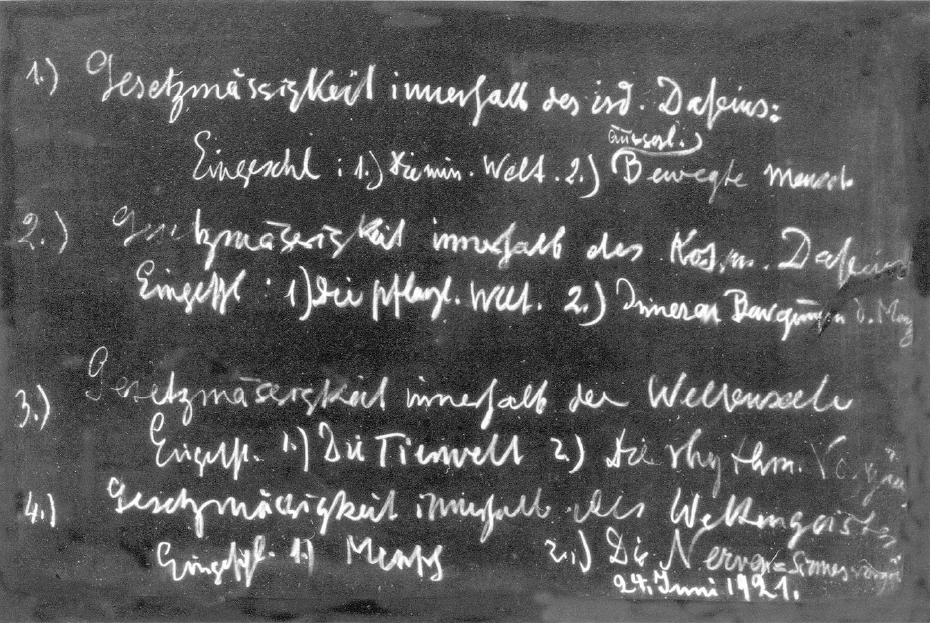 1.) Gesetzmässigkeit innerhalb des ird. Daseins:
äusserl.
Eingeschl : 1.) Die min. Welt. 2.) Bewegte Mensch
2.) Gesetzmässigkeit innerhalb des Kosm. Daseins
Eingeschl : 1) Die pflanzl. Welt. 2.) Inneren Bewegungen d. Mensch
3.) Gesetzmässigkeit innerhalb der Weltenseele
Eingeschl. 1.) Die Tierwelt 2.) Die rhythm. Vorgänge
4.) Gesetzmässigkeit innerhalb des Weltengeistes
Eingeschl. 1.) Mensch 2.) Die Nerven=Sinnesvorgä
24. Juni 1921.